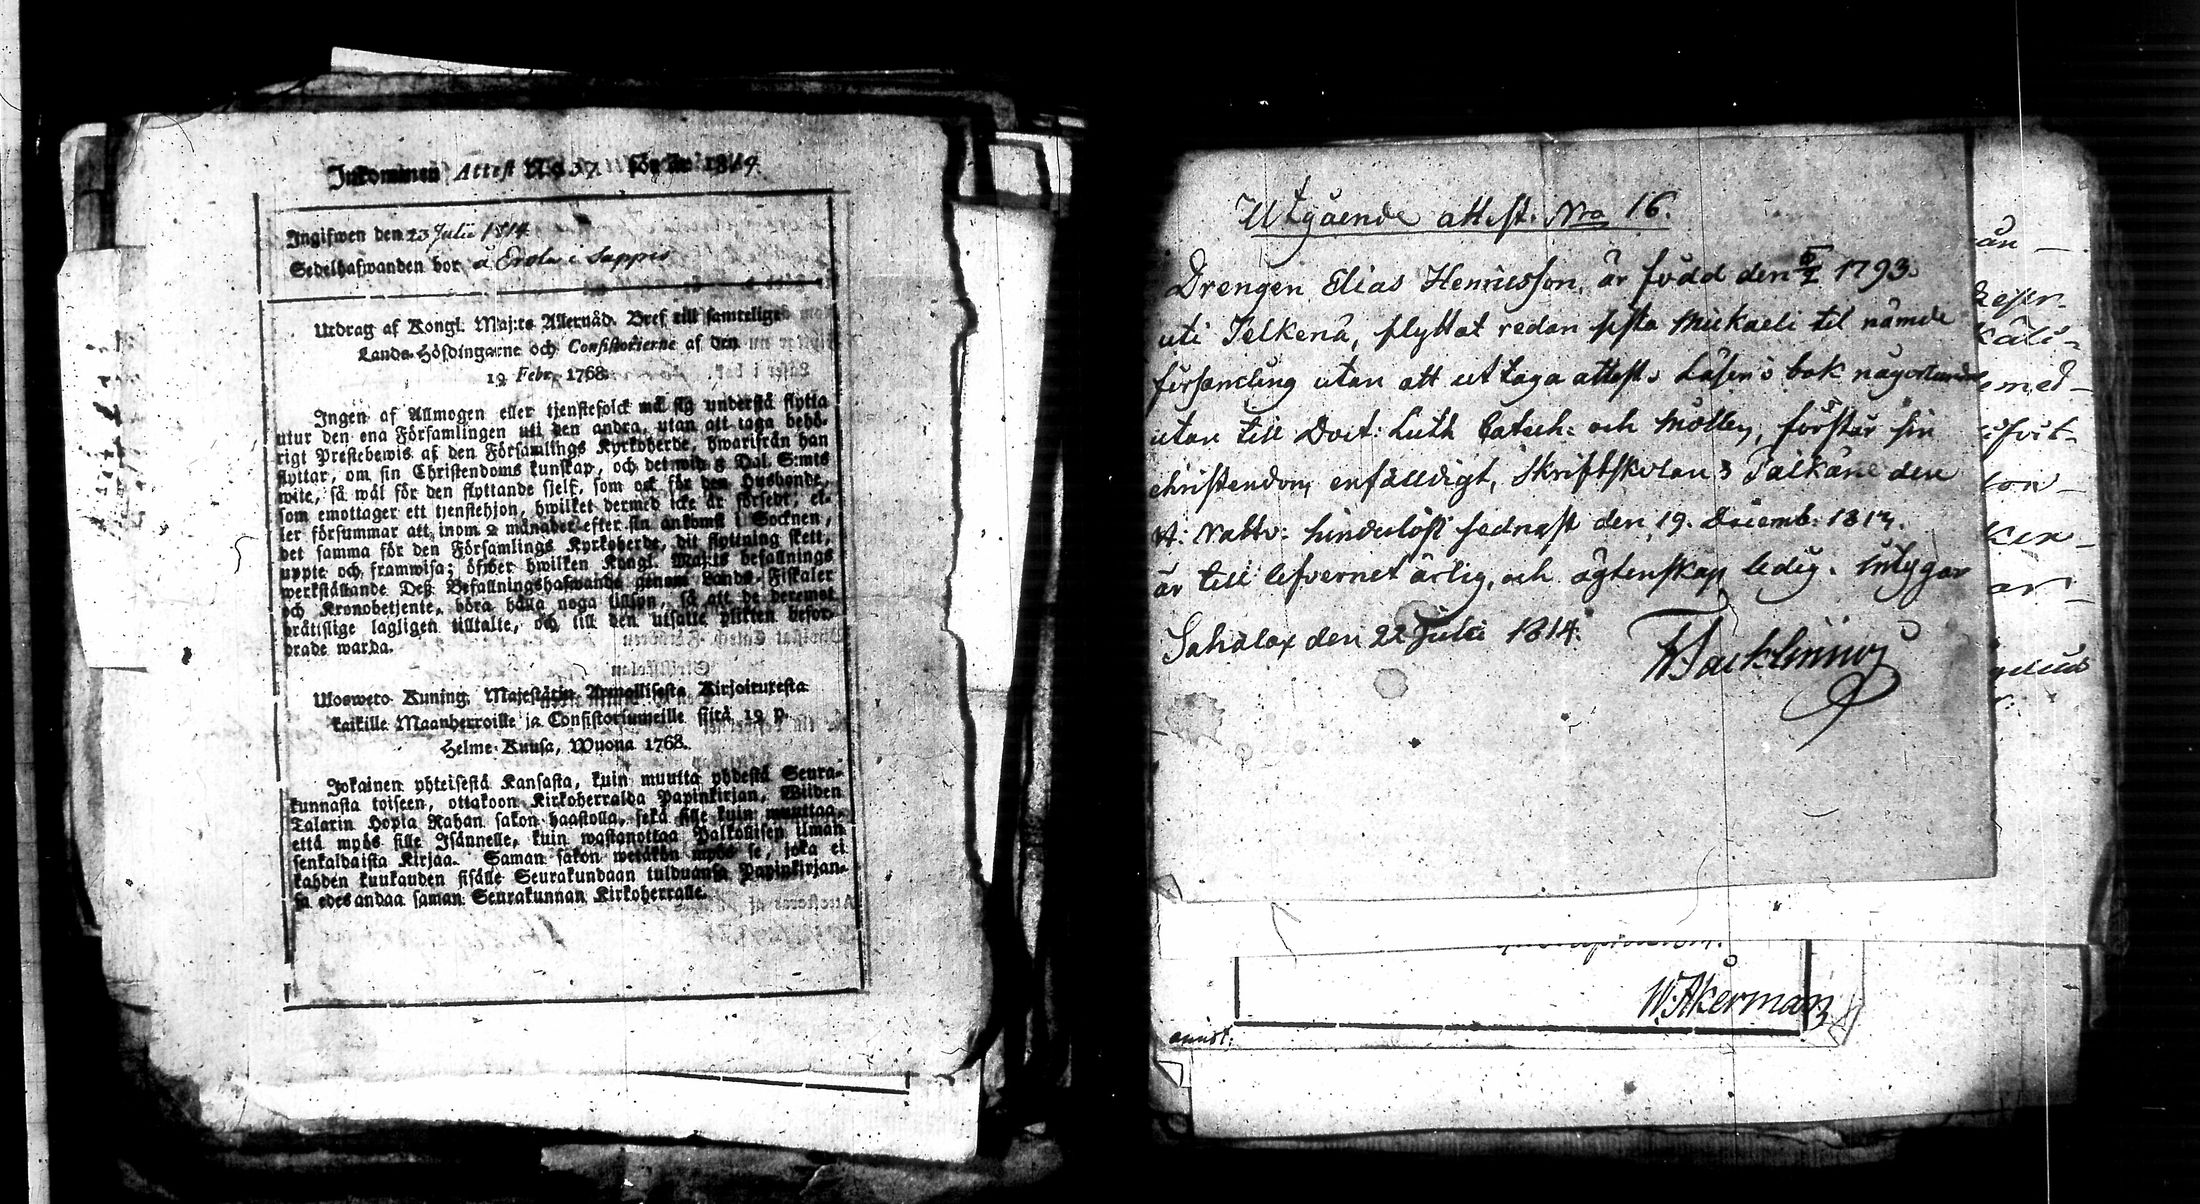 Inkommen Attest No 37 för år 1814.
Ingifwen den 23 Julii 1814
Sedelhafwanden bor å Erola i Sappis
Utdrag af Kongl. Maj:ts Allernåd. Bref till samtelige
Lands-Höfdingarne och Consistorierne af den
19 Febr. 1768.
Ingen af Allmogen eller tjenstefolck må sig understå flytta
utur den ena Församlingen uti den andra, utan att taga behö-
rigt Prestebewis af den Församlings Kyrkoherde, hwarifrån han
flyttar, om sin Christendoms kunskap, och det wid 8 Dal. S:mts
wite, så wäl för den flyttande sielf, som ock för den Husbonde,
som emottager ett tjenstehjon, hwilket dermed icke är försedt, el-
ler försummar att inom 2 månader efter sin ankomst i Socknen,
det samma för den Församlings Kyrkoherde, dit flyttning skett,
uppte och framwisa; öfwer hwilken Kongl. Maj:ts befallnings
werkställande Deß Befallningshafwande genom Lands-Fiskaler
och Kronobetjente, böra hålla noga tillsyn, så att de deremot
brätislige lagligen tilltalte, och till den utsatte plikten befor-
drade warda.
Ulosweto Kuning. Majestätin Armollisesta Kirjoituxesta
kaikille Maanherroille ja Consistoriumeille siitä 19 p.
Helme-Kuusa, Wuona 1768.
Jokainen yhteisestä Kansasta, kuin muutta yhdestä Seura-
kunnasta toiseen, ottakoon Kirkoherralda Papinkirjan, Wiiden
Talarin Hopia Rahan sakon haastolla, sekä sille kuin muuttaa,
että myös sille Isännelle, kuin wastanottaa Palkollisen ilman
senkaldaista Kirjaa. Saman sakon wetäkön myös se, joka ei
kahden kuukauden sisälle Seurakundaan tulduansa Papinkirjan-
sa edes andaa saman Seurakunnan Kirkoherralle.
Utgående attest. Nro 16.
Drengen Elias Henricsson, är född den 5/2 1793.
uti Pelkenä, flyttat redan sista Mickaeli til nämde
församling utan att uttaga attest, Läser i bok någorlunda
utan till Doct: Luth Catech: och Möllen, förstår sin
christendom enfälldigt, Skriftskolan i Pälkäne den
H: Nattv: hinderlöst sednast den 19. Decemb: 1813.
är till lefvernet ärlig, och ägtenskap ledig. intygar
Sahalax den 22 Julii 1814.
W. Åkerman